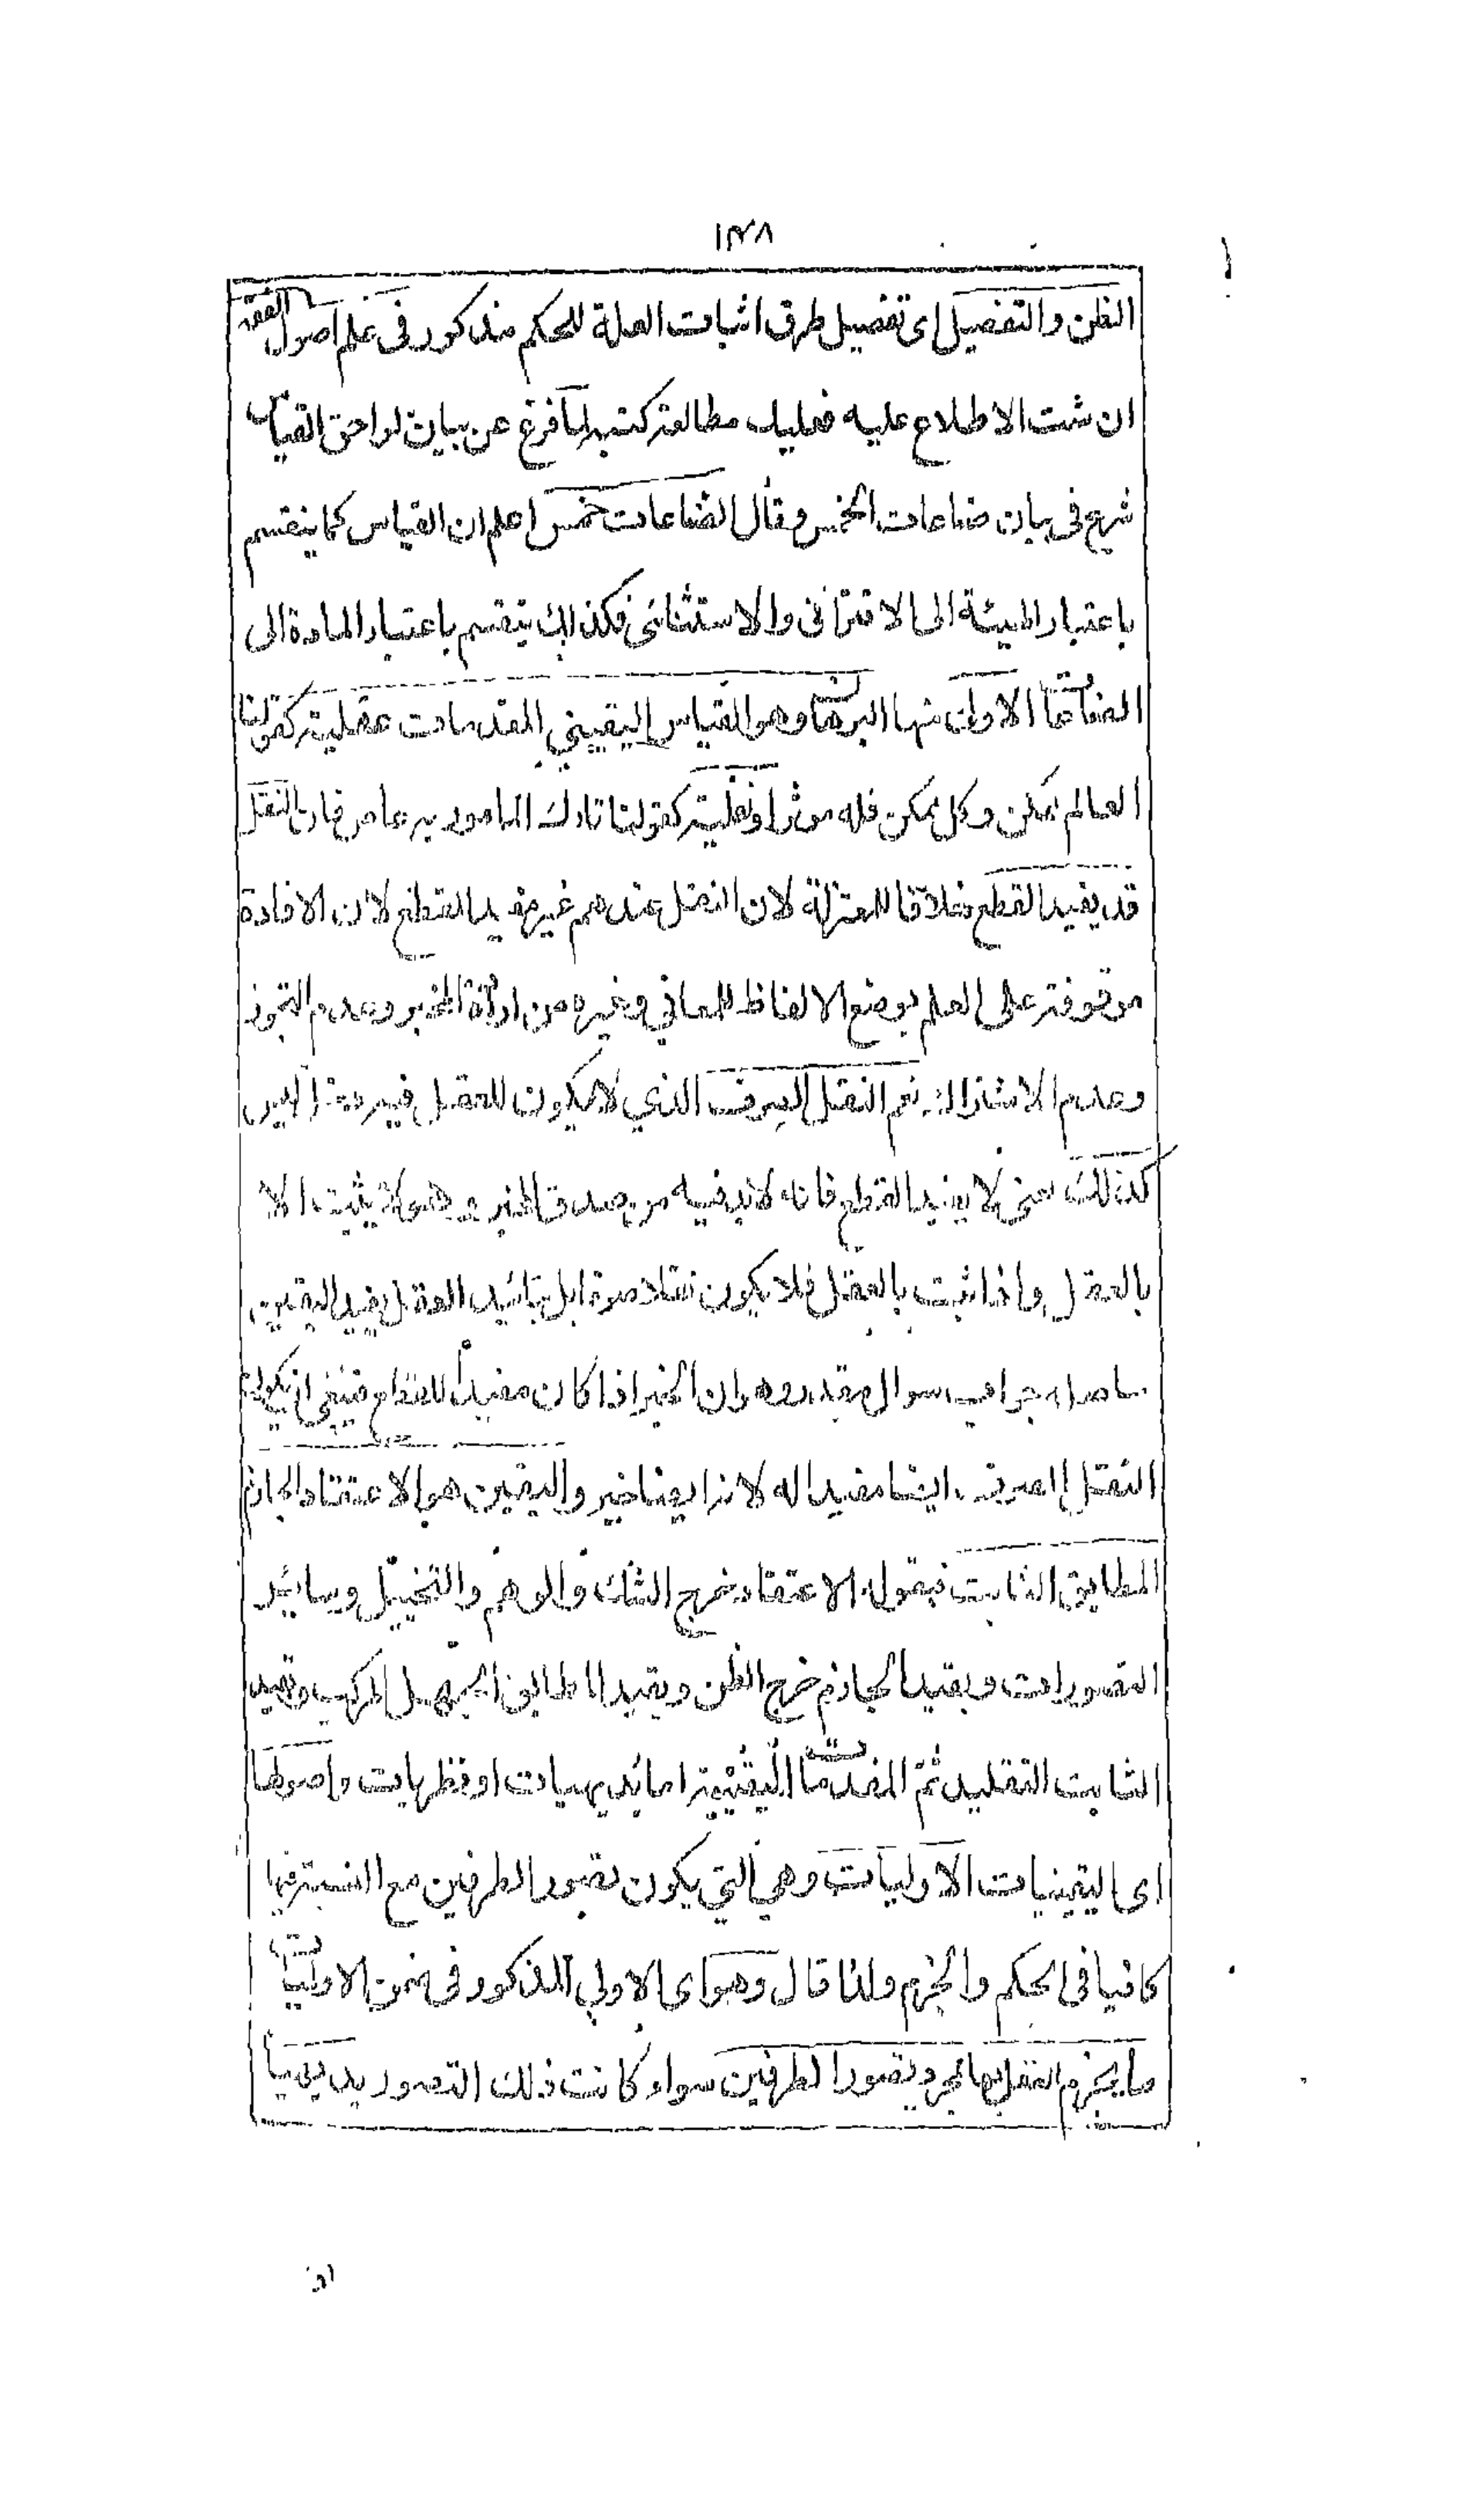 ١٣٨
الظن والتفصيل اى تفصيل طرق اثبات العلة للحكم مذكور فى علم اصول الفقه
ان شئت الاطلاع عليه فعليك مطالعة كتبه ولما فرغ عن بيان لواحق القياس
شرع فى بيان صناعات الخمس وقال الصناعات خمس اعلم ان القياس كما ينقسم
باعتبار الهيئة الى الاقترانى والاستثنائى فكذالك ينقسم باعتبار المادة الى
الصناعات الاول منها البرهان وهو القياس اليقيني المقدمات عقلية كقولنا
العالم ممكن وكل ممكن فله موثر او نقلية كقولنا تارك المامور به عاص فان النقل
قد يفيد القطع خلافا للمعتزلة لان النقل عندهم غير مفيد القطع لان الافادة
موقوفة على العلم بوضع الالفاظ للمعاني وغيره من ارادة المخبر وعدم التجوز
وعدم الاشتراك نعم النقل الصرف الذي لا يكون للعقل فيه ليس
كذلك يعنى لا يفيد القطع فانه لابد فيه من صدق المخبر وهو لا يثبت الا
بالعقل واذا ثبت بالعقل فلا يكون نقلا صرفا بل بتائيد العقل يفيد اليقين
حاصله جواب سوال مقدر وهو ان الخبر اذا كان مفيداً للقطع فينبغى ان يكون
النقل الصرف ايضا مفيدا له لانه ايضا خبر واليقين هو الاعتقاد الجازم
المطابق الثابت فبقوله الاعتقاد خرج الشك والوهم والتخييل وسائر
التصورات وبقيد الجازم خرج الظن وبقيد المطابق الجهل المركب وبقيد
الثابت التقليد ثم المقدمات اليقينية اما بديهيات او نظريات واصولها
اى اليقينيات الاوليات وهى التي يكون تصور الطرفين مع النسبة فيها
كافيا فى الحكم والجزم ولذا قال وهو اى الاولي المذكور فى ضمن الاوليات
ما يجزم العقل بها بمجرد تصور الطرفين سواء كانت ذلك التصور بديهيا